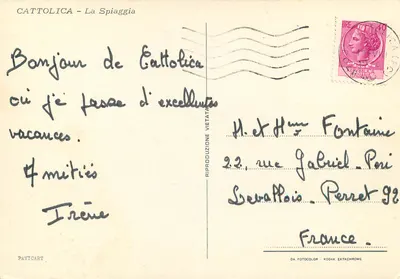 CATTOLICA - La Spiaggia
Bonjour de Cattolica
où je passe d'excellentes
vacances.
Amitiés
Irène
RIPRODUZIONE VIETATA
M. et Mme Fontaine
22, rue Gabriel-Péri
Levallois-Perret 92
France.